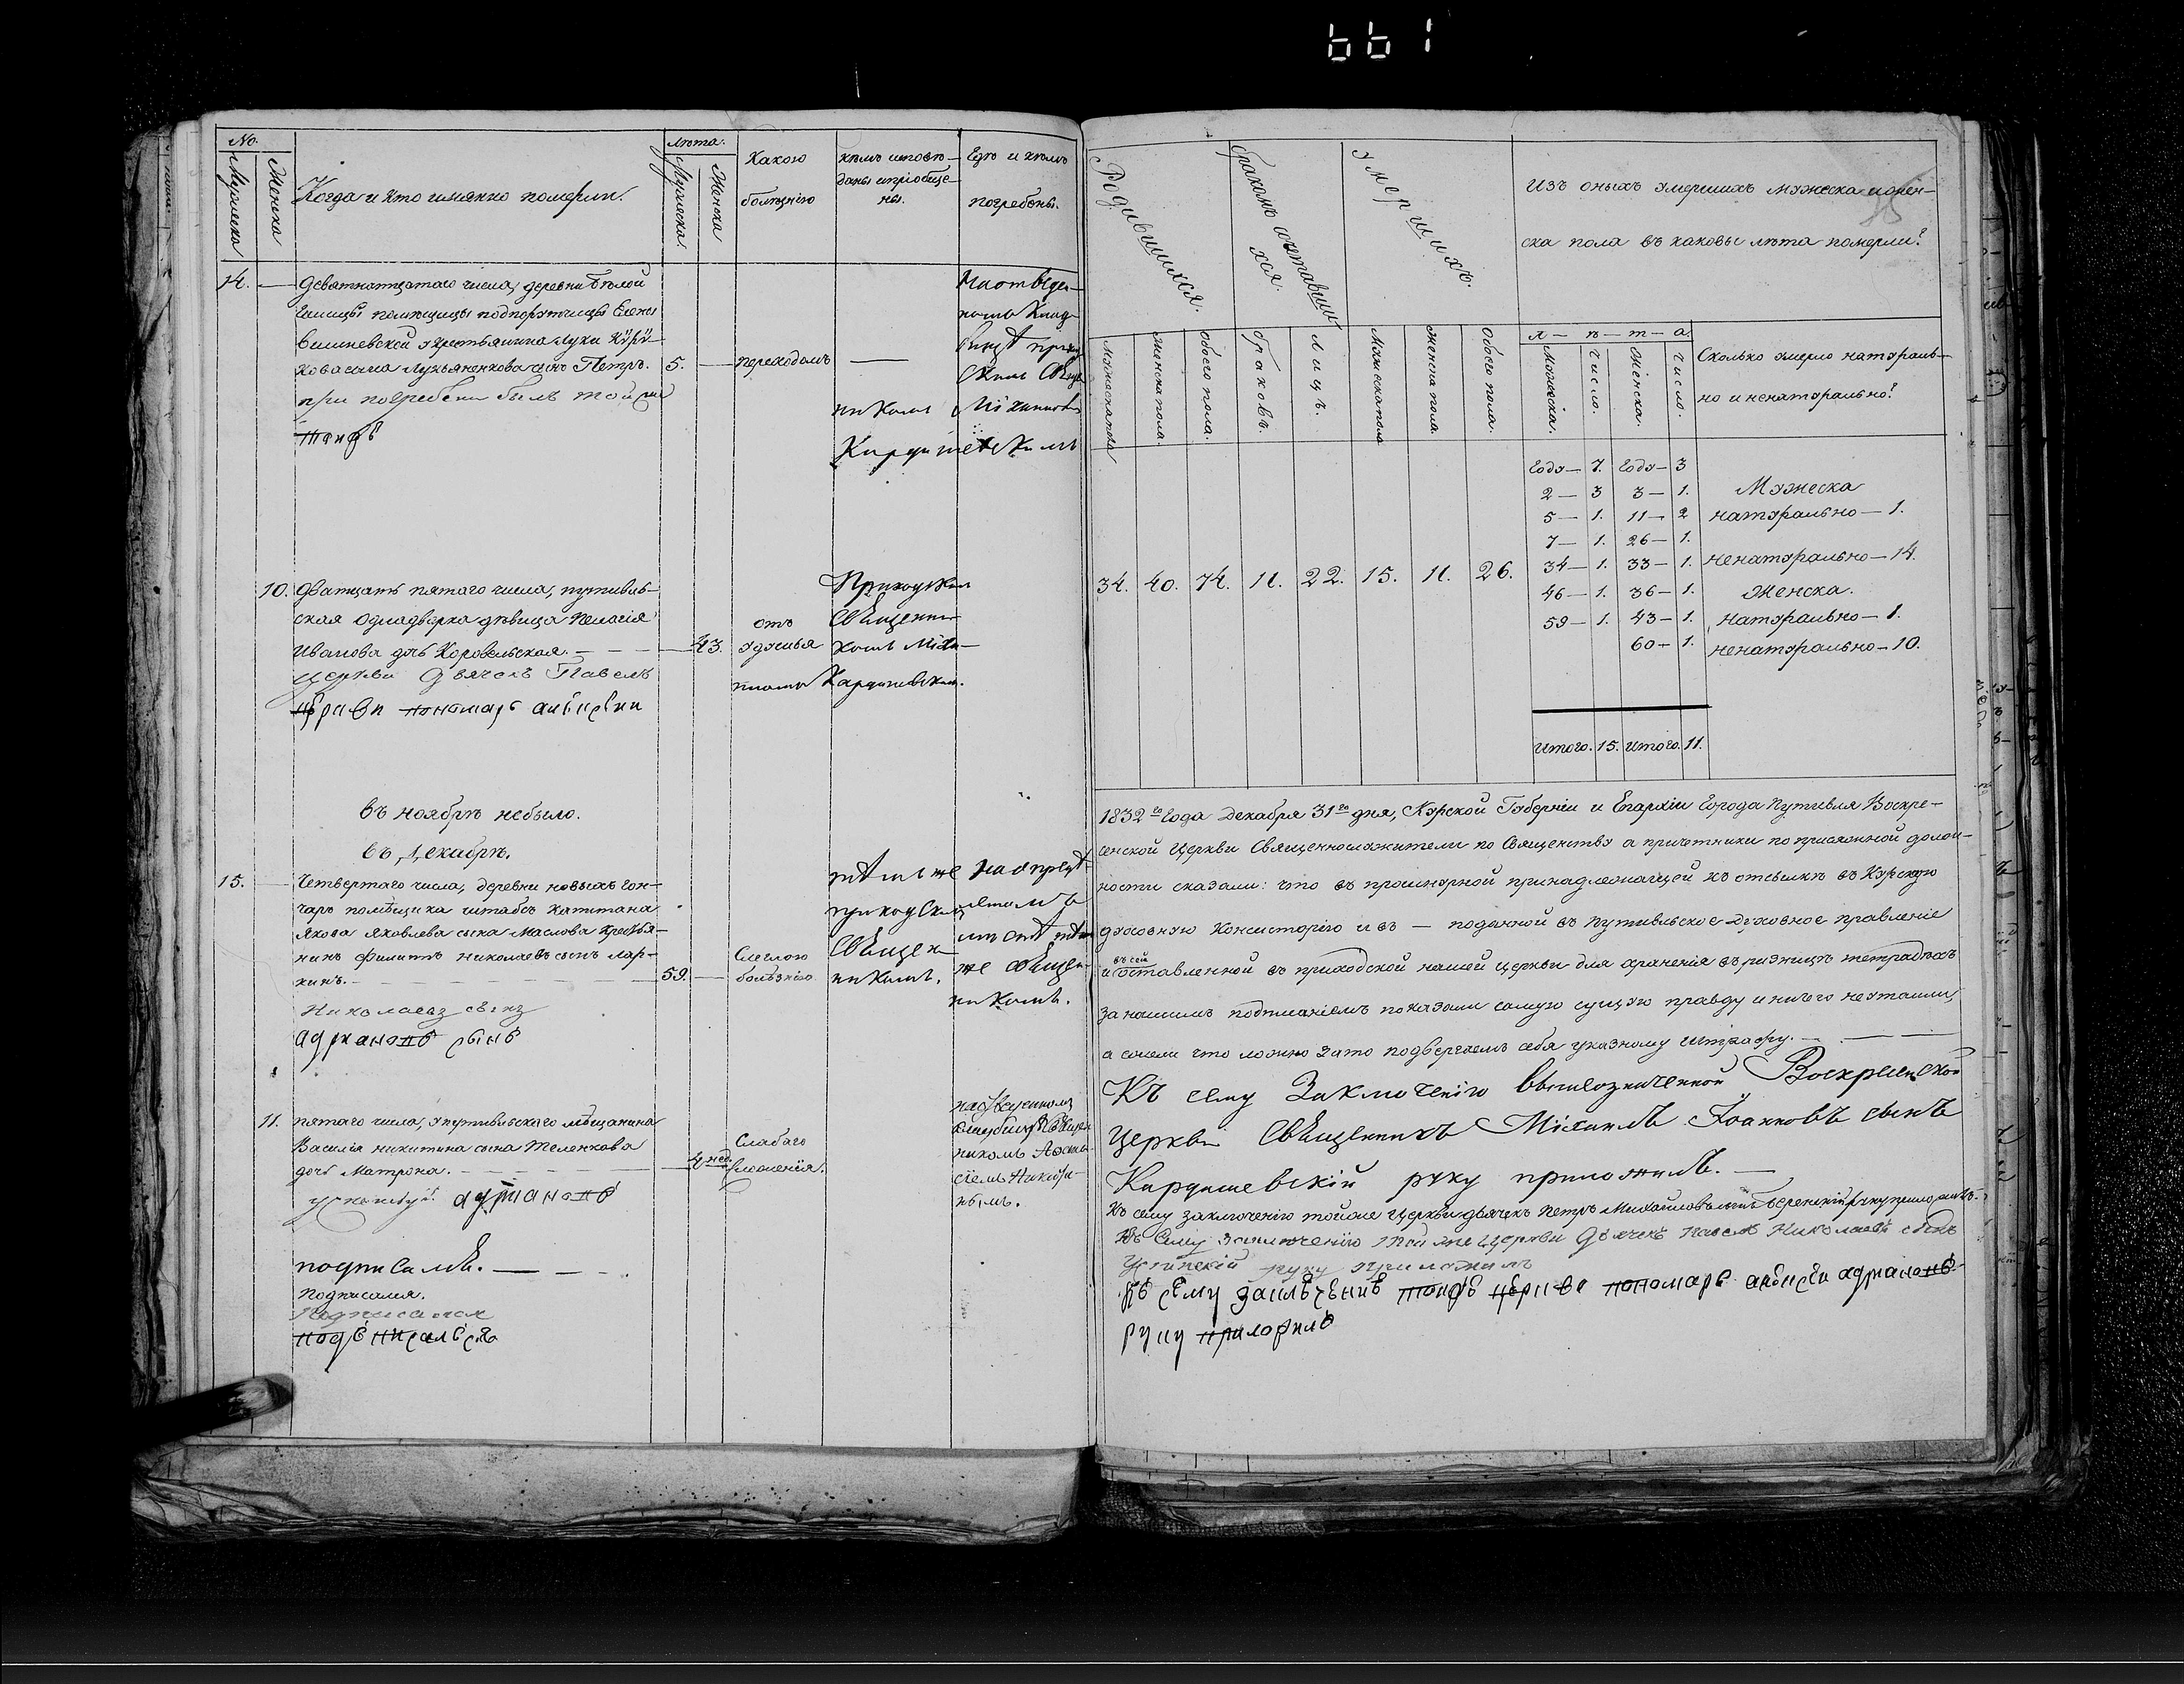 1661
No.
Мужеска
Женска
Когда и кто имянно померли.
лѣта.
Мужеска.
Женска
Какою
болѣзнію
кѣмъ исповѣ-
даны и пріобще-
ны.
Гдѣ и кѣмъ
погребены.
14. — Девятнатцатаго числа, деревни бѣлой
помѣщицы подпорутчицы Елены
у крестьянина Луки
сына Лукьяненкова сынъ Петръ.
5. — переходомъ —
при погребени былъ той
На отведен-
номъ клад-
бищѣ приход
скимъ Свяще
никомъ Міхаиломъ
Кардишевскимъ
10. Дватцать пятаго числа, путивль-
ская однадворка дѣвица Пелагія
Иванова дочь Коровельская. — — —
церкви Дьячокъ Павелъ
пономарь
43.
отъ
удушья
Приходским
Священни
комъ Міха-
иломъ Кардишевским.
въ ноябрѣ небыло.
въ Декабрѣ.
15. — Четвертаго числа, деревни новыхъ гон-
чаръ помѣщика штабсъ капитана
Якова Яковлева сына Маслова крестья-
нинъ Филипъ николаевъ сынъ Лар-
кинъ. — — — —
59. —
болѣзнію
тѣмъ же
приходским
Священ
никомъ.
же Священ-
никомъ.
Николаевъ сынъ
адриановъ сынъ
11. пятаго числа, у путивльского мѣщанина
Василія никитина сына Теленкова
дочь Матрона. — — — —
4 нед.
Слабаго
сложенія.
никомъ
нымъ.
адриановъ
подписалъ. — — —
Подписался.
Подписался
подъписалься
Родившихся.
бракомъ сочетавши-
хся.
Умершихъ.
Изъ оныхъ умершихъ мужеска и жен-
ска пола въ каковы лѣта померли?
Мужеска пола
Женска пола.
Обоего пола.
браковъ.
Лицъ.
Мужеска пола
Женска пола.
Обоего пола.
л — ѣ — т — а
Мужеска.
Число.
Женска.
Число.
Сколько умерло натураль-
но и ненатурально?
34. 40. 74. 11. 22. 15. 11. 26.
Году — 7. Году — 3
2 — 3 3 — 1.
5 — 1. 11 — 2
7 — 1. 26 — 1.
34 — 1. 33 — 1.
46 — 1. 36 — 1.
59 — 1. 43 — 1.
60 — 1.
Мужеска
натурально — 1.
ненатурально — 14.
Женска.
натурально — 1.
ненатурально — 10.
Итого. 15. Итого. 11.
1832го Года Декабря 31го дня, Курской Губерніи и Епархіи Города Путивля Воскре-
сенской Церкви Священнослужители по Священству а причетники по присяжной долж-
ности сказали: что въ прошнурной принадлежащей къ отсылкѣ въ Курскую
духовную Консисторію и въ — поданной въ Путивльское Духовное правленіе
въ сей
и оставленной въ приходской нашей церкви для храненія въ ризницѣ тетрадѣхъ
за нашимъ подписаніемъ показали самую сущую правду и ничего неутаили,
а ежели что ложно зато подвергаемъ себя указному штрафу. — —
Къ сему Заключенію вышеозначенной Воскресенской
Церкви Священникъ Міхаилъ Іоанновъ сынъ
Кардишевскій руку приложилъ. —
Къ сему заключенію тойже Церкви дьячекъ Петръ Михайловъ сынъ руку приложилъ.
Къ Сему Заключенію той же Церкви Дьячекъ Павелъ Николаевъ сынъ
Успенскій руку приложилъ
пономарь адриановъ
руку приложилъ